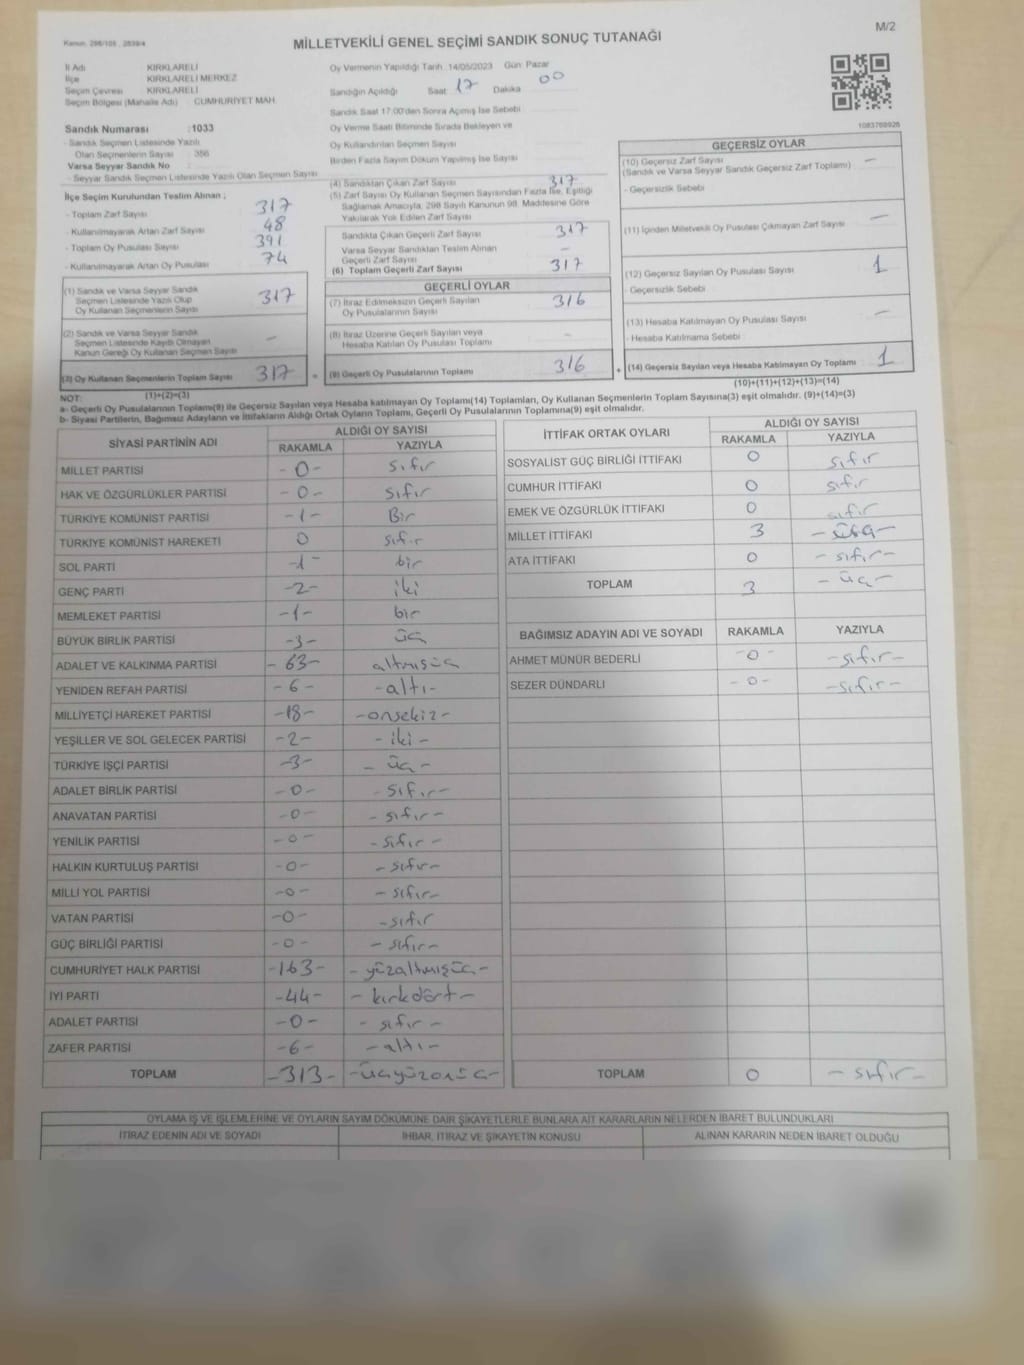 M/2
Kanun: 298/105 , 2839/4
MİLLETVEKİLİ GENEL SEÇİMİ SANDIK SONUÇ TUTANAĞI
İl Adı KIRKLARELİ
İlçe KIRKLARELİ MERKEZ
Seçim Çevresi KIRKLARELİ
Seçim Bölgesi (Mahalle Adı) CUMHURİYET MAH.
Oy Vermenin Yapıldığı Tarih :14/05/2023 Gün: Pazar
Sandığın Açıldığı Saat 17 Dakika 00
Sandık Saat 17:00'den Sonra Açılmış İse Sebebi
Oy Verme Saati Bitiminde Sırada Bekleyen ve
Oy Kullandırılan Seçmen Sayısı
Birden Fazla Sayım Döküm Yapılmış İse Sayısı
Sandık Numarası :1033
- Sandık Seçmen Listesinde Yazılı
Olan Seçmenlerin Sayısı : 356
Varsa Seyyar Sandık No
- Seyyar Sandık Seçmen Listesinde Yazılı Olan Seçmen Sayısı
İlçe Seçim Kurulundan Teslim Alınan ;
- Toplam Zarf Sayısı 317
- Kullanılmayarak Artan Zarf Sayısı 48
- Toplam Oy Pusulası Sayısı 391
- Kullanılmayarak Artan Oy Pusulası 74
(1) Sandık ve Varsa Seyyar Sandık
Seçmen Listesinde Yazılı Olup
Oy Kullanan Seçmenlerin Sayısı 317
(2) Sandık ve Varsa Seyyar Sandık
Seçmen Listesinde Kayıtlı Olmayan
Kanun Gereği Oy Kullanan Seçmen Sayısı -
(3) Oy Kullanan Seçmenlerin Toplam Sayısı 317
(1)+(2)=(3)
(4) Sandıktan Çıkan Zarf Sayısı 317
(5) Zarf Sayısı Oy Kullanan Seçmen Sayısından Fazla İse, Eşitliği
Sağlamak Amacıyla, 298 Sayılı Kanunun 98. Maddesine Göre
Yakılarak Yok Edilen Zarf Sayısı
Sandıkta Çıkan Geçerli Zarf Sayısı 317
Varsa Seyyar Sandıktan Teslim Alınan
Geçerli Zarf Sayısı -
(6) Toplam Geçerli Zarf Sayısı 317
GEÇERLİ OYLAR
(7) İtiraz Edilmeksizin Geçerli Sayılan
Oy Pusulalarının Sayısı 316
(8) İtiraz Üzerine Geçerli Sayılan veya
Hesaba Katılan Oy Pusulası Toplamı -
= (9) Geçerli Oy Pusulalarının Toplamı 316
1083769926
GEÇERSİZ OYLAR
(10) Geçersiz Zarf Sayısı -
(Sandık ve Varsa Seyyar Sandık Geçersiz Zarf Toplamı)
- Geçersizlik Sebebi
(11) İçinden Milletvekili Oy Pusulası Çıkmayan Zarf Sayısı -
(12) Geçersiz Sayılan Oy Pusulası Sayısı 1
- Geçersizlik Sebebi
(13) Hesaba Katılmayan Oy Pusulası Sayısı -
- Hesaba Katılmama Sebebi
+ (14) Geçersiz Sayılan veya Hesaba Katılmayan Oy Toplamı 1
(10)+(11)+(12)+(13)=(14)
NOT:
a- Geçerli Oy Pusulalarının Toplamı(9) ile Geçersiz Sayılan veya Hesaba katılmayan Oy Toplamı(14) Toplamları, Oy Kullanan Seçmenlerin Toplam Sayısına(3) eşit olmalıdır. (9)+(14)=(3)
b- Siyasi Partilerin, Bağımsız Adayların ve İttifakların Aldığı Ortak Oyların Toplamı, Geçerli Oy Pusulalarının Toplamına(9) eşit olmalıdır.
SİYASİ PARTİNİN ADI ALDIĞI OY SAYISI
RAKAMLA YAZIYLA
MİLLET PARTİSİ -0- sıfır
HAK VE ÖZGÜRLÜKLER PARTİSİ -0- sıfır
TÜRKİYE KOMÜNİST PARTİSİ -1- Bir
TÜRKİYE KOMÜNİST HAREKETİ 0 sıfır
SOL PARTİ -1- bir
GENÇ PARTİ -2- iki
MEMLEKET PARTİSİ -1- bir
BÜYÜK BİRLİK PARTİSİ -3- üç
ADALET VE KALKINMA PARTİSİ -63- altmışüç
YENİDEN REFAH PARTİSİ -6- -altı-
MİLLİYETÇİ HAREKET PARTİSİ -18- -onsekiz-
YEŞİLLER VE SOL GELECEK PARTİSİ -2- -iki-
TÜRKİYE İŞÇİ PARTİSİ -3- -üç-
ADALET BİRLİK PARTİSİ -0- -sıfır-
ANAVATAN PARTİSİ -0- -sıfır-
YENİLİK PARTİSİ -0- -sıfır-
HALKIN KURTULUŞ PARTİSİ -0- -sıfır-
MİLLİ YOL PARTİSİ -0- -sıfır-
VATAN PARTİSİ -0- -sıfır
GÜÇ BİRLİĞİ PARTİSİ -0- -sıfır-
CUMHURİYET HALK PARTİSİ -163- -yüzaltmışüç-
İYİ PARTİ -44- -kırkdört-
ADALET PARTİSİ -0- -sıfır-
ZAFER PARTİSİ -6- -altı-
TOPLAM -313- -üçyüzonüç-
İTTİFAK ORTAK OYLARI ALDIĞI OY SAYISI
RAKAMLA YAZIYLA
SOSYALİST GÜÇ BİRLİĞİ İTTİFAKI 0 sıfır
CUMHUR İTTİFAKI 0 sıfır
EMEK VE ÖZGÜRLÜK İTTİFAKI 0 sıfır
MİLLET İTTİFAKI 3
ATA İTTİFAKI 0 -sıfır-
TOPLAM 3 -üç-
BAĞIMSIZ ADAYIN ADI VE SOYADI RAKAMLA YAZIYLA
AHMET MÜNÜR BEDERLİ -0- -sıfır-
SEZER DÜNDARLI -0- -sıfır-
TOPLAM 0 -sıfır-
OYLAMA İŞ VE İŞLEMLERİNE VE OYLARIN SAYIM DÖKÜMÜNE DAİR ŞİKAYETLERLE BUNLARA AİT KARARLARIN NELERDEN İBARET BULUNDUKLARI
İTİRAZ EDENİN ADI VE SOYADI İHBAR, İTİRAZ VE ŞİKAYETİN KONUSU ALINAN KARARIN NEDEN İBARET OLDUĞU